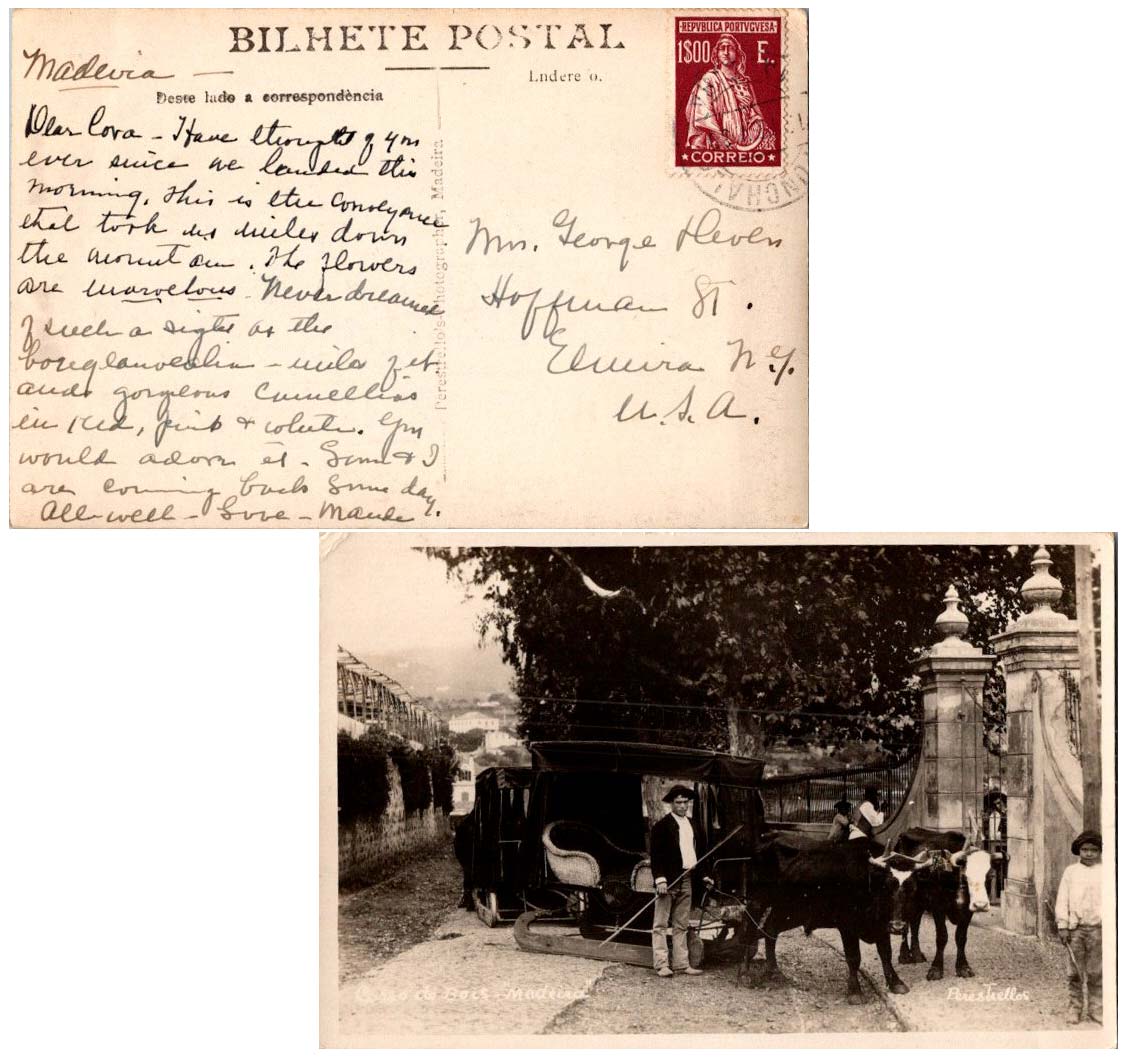 BILHETE POSTAL
Endere o.
Deste lado a correspondència
Perestrello's Photographer, Madeira
REPVBLICA PORTVGVESA
1$00 E.
CORREIO
UNCHAL
Madeira —
Dear Cora – Have thought of you
ever since we landed this
morning. This is the conveyance
that took us miles down
the mountain. The flowers
are marvelous. Never dreamed
of such a sight as the
bouganvealia – miles of it
and gorgeous Camellias
in red, pink & white. You
would adore it – & I
are coming back some day.
All well – Love – Maude
Mrs. George Heven
Hoffman St.
Elmira N.Y.
U.S.A.
Corso de Bois - Madeira
Perestrellos